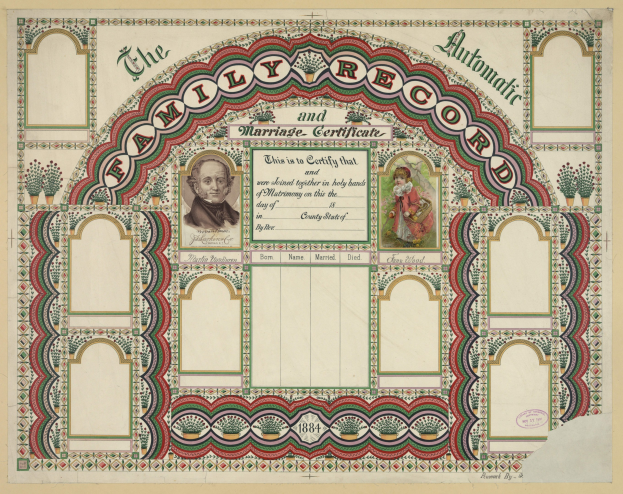 The Automatic
FAMILY RECORD
and
Marriage Certificate
This is to Certify that
and
were Joined together in holy bands
of Matrimony on this the
day of 18
in County State of
By Rev
Born. Name. Married. Died.
1884